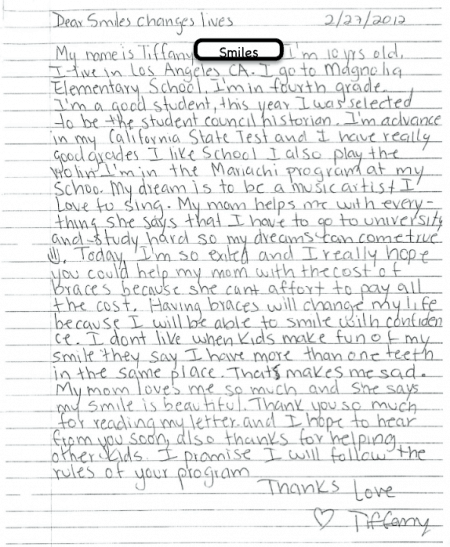 Dear Smiles changes lives 2/27/2012
My name is Tiffany Smiles I'm 10 yrs old.
I live in Los Angeles CA. I go to Magnolia
Elementary School. I'm in fourth grade.
I'm a good student, this year I was selected
to be the student council historian. I'm advance
in my California State Test and I have really
good grades I like School I also play the
Violin I'm in the Mariachi program at my
Schoo. My dream is to be a music artist I
Love to sing. My mom helps me with every-
thing she says that I have to go to university
and study hard so my dreams can come true
. Today, I'm so exited and I really hope
you could help my mom with the cost of
braces because she cant affort to pay all
the cost. Having braces will change my life
because I will be able to smile with confiden
ce. I dont like when kids make fun of my
smile they say I have more than one teeth
in the same place. Thats makes me sad.
My mom loves me so much and she says
my smile is beautiful. Thank you so much
for reading my letter and I hope to hear
from you soon, also thanks for helping
other kids. I promise I will follow the
rules of your program
Thanks Love
♡ Tiffany